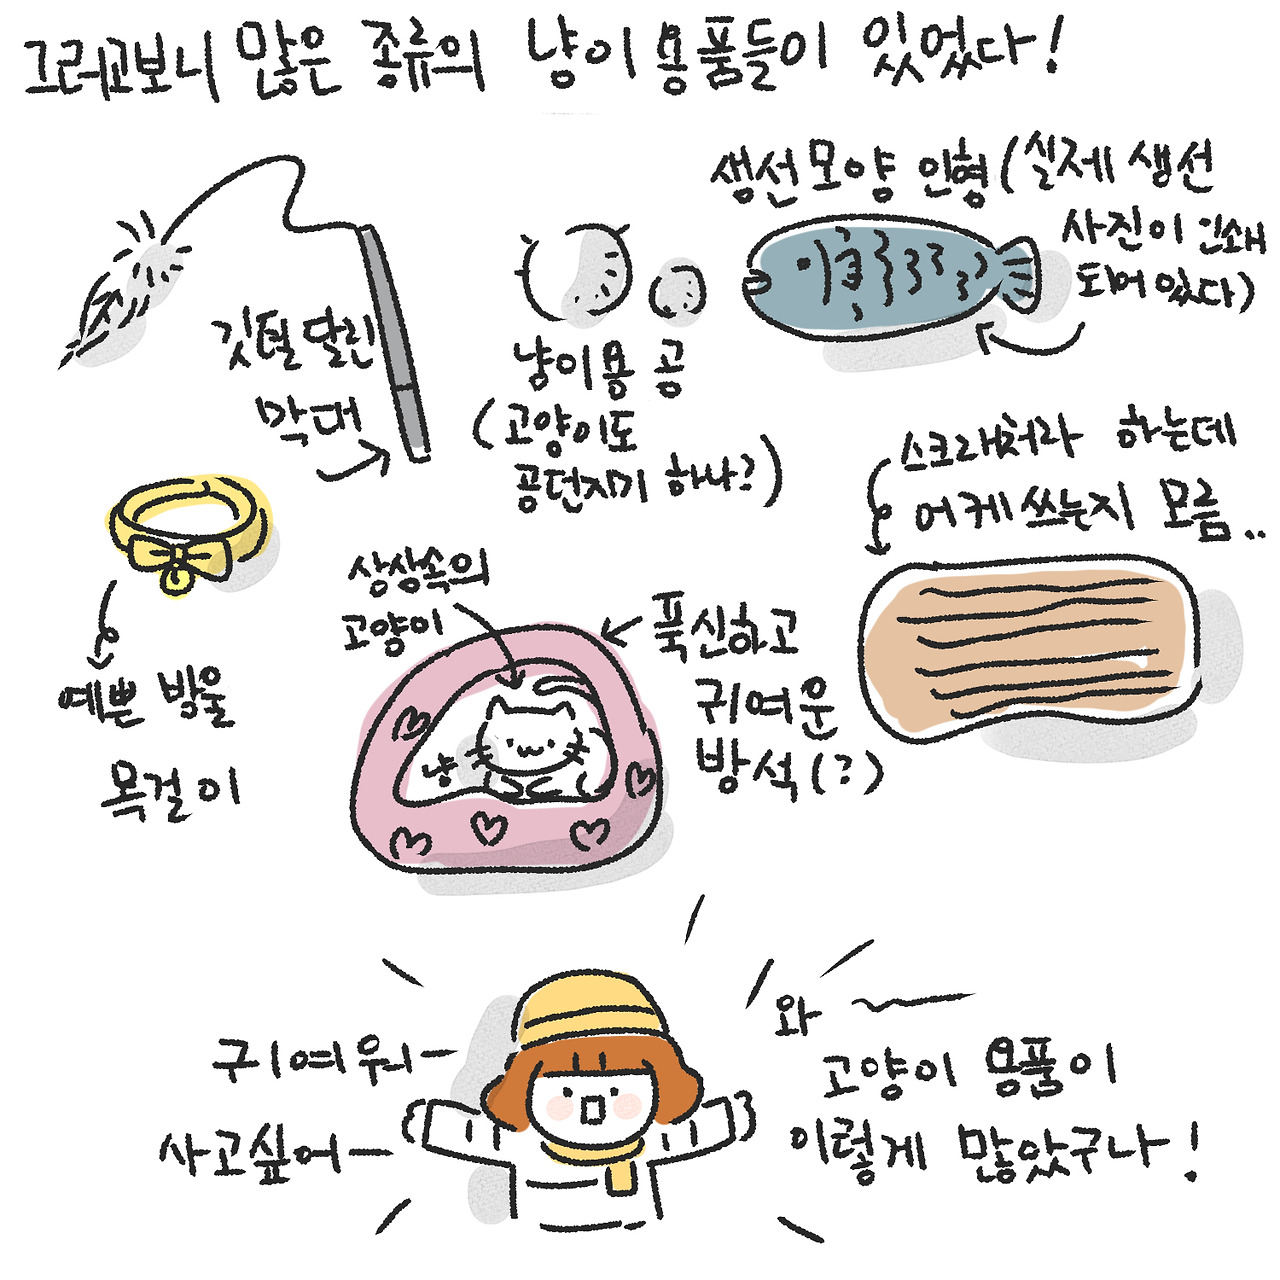 그러고보니 많은 종류의 냥이 용품들이 있었다!
생선모양 인형 (실제 생선
사진이 인쇄
되어 있다)
깃털 달린
막대
냥이용 공
(고양이도
공던지기 하나?)
스크래쳐라 하는데
어케 쓰는지 모름..
예쁜 방울
목걸이
상상속의
고양이
푹신하고
귀여운
방석(?)
냥
귀여워ㅡ
사고싶어ㅡ
와
고양이 용품이
이렇게 많았구나!